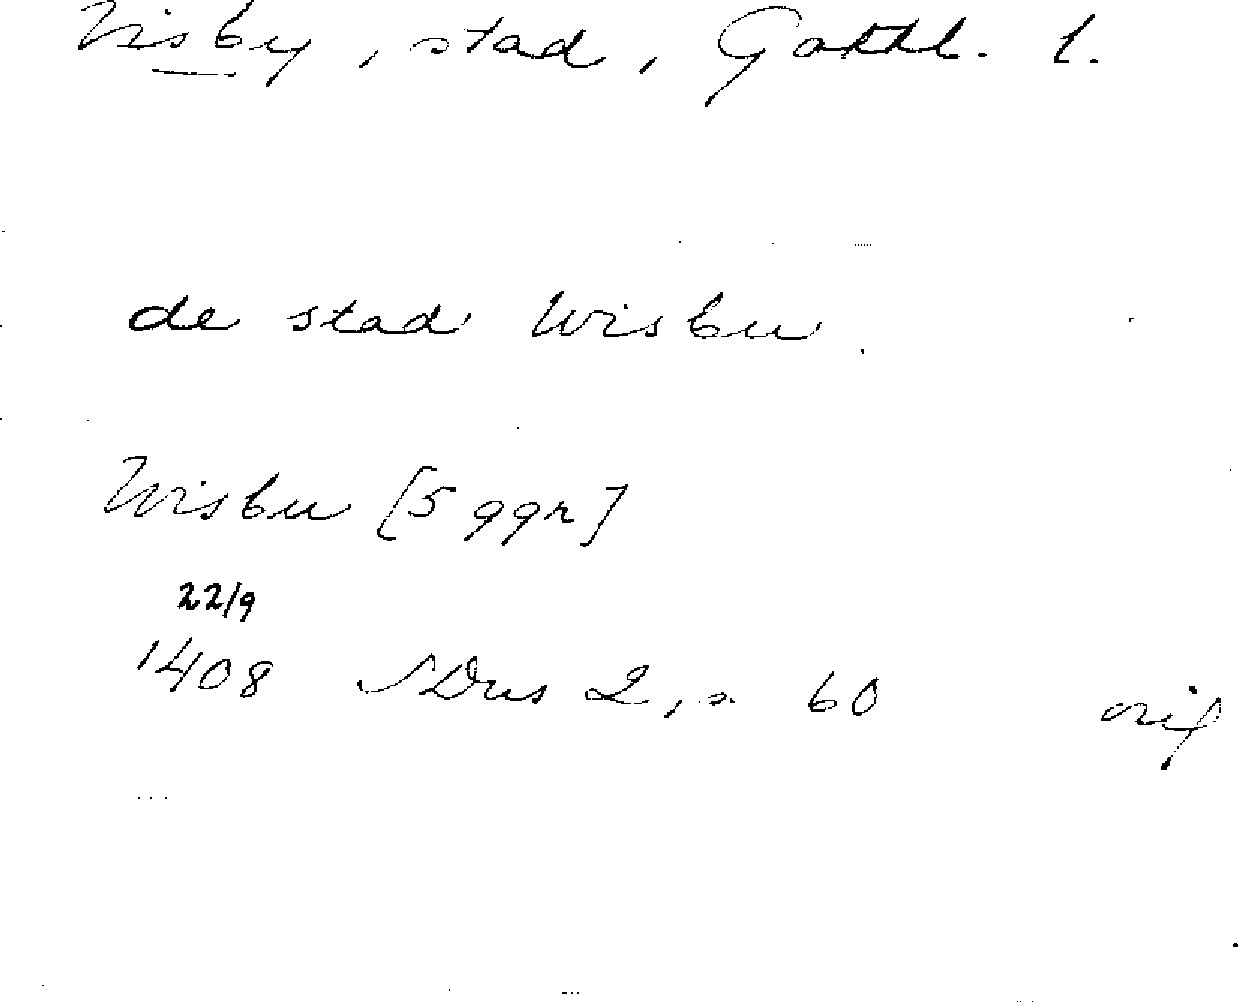 Visby, stad, Gotthl. l.
de stad Wisbu
Wisbu [5 ggr]
22/9
1408 SDns 2, s 60 orig